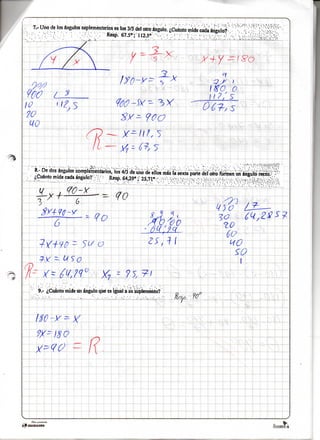 7.- Uno de los ángulos suplementarios es los 3/5 del otro ángulo. ¿Cuánto mide cada ángulo?
Resp. 67,5°; 112,5°
y x
y = 3/5 x
x + y = 180
180 - x = 3/5 x
900 - 5x = 3x
8x = 900
x = 112,5
y = 67,5
900 8
10 112,5
20
40
180,0
112,5
067,5
8.- De dos ángulos complementarios, los 4/3 de uno de ellos más la sexta parte del otro forman un ángulo recto. ¿Cuánto mide cada ángulo?
Resp. 64,29°; 25,71°
4/3 x + 90-x/6 = 90
8x+90-x/6 = 90
7x+90 = 540
7x = 450
R= x = 64,29° x₂ = 25,71
25,71
450 7
30 64,2857
20
60
40
50
1
9.- ¿Cuánto mide un ángulo que es igual a su suplemento?
Resp. 90°
180 - x = x
2x = 180
x = 90 = R